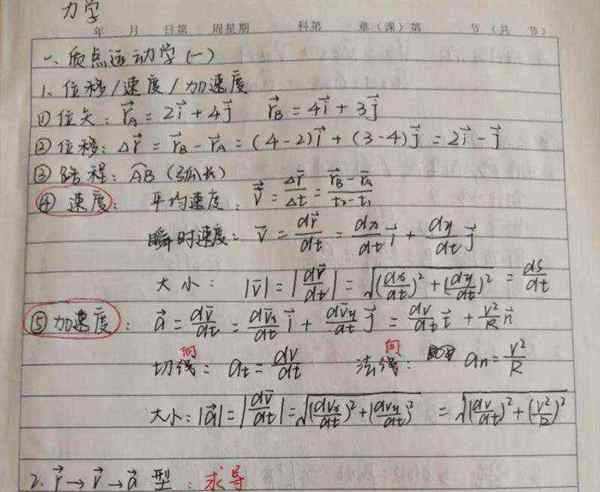 力学
年 月 日第 周星期 科第 章(课)第 节(共 节)
一、质点运动学(一)
1、位移/速度/加速度
①位矢: r⃗A=2i⃗+4j⃗ r⃗B=4i⃗+3j⃗
②位移: Δr⃗=r⃗B-r⃗A=(4-2)i⃗+(3-4)j⃗=2i⃗-j⃗
③路程: AB(弧长)
④速度: 平均速度: v⃗=Δr⃗/Δt=(r⃗B-r⃗A)/(t2-t1)
瞬时速度: v⃗=dr⃗/dt=dx/dt i⃗+dy/dt j⃗
大小: |v⃗|=|dr⃗/dt|=√((dx/dt)²+(dy/dt)²)=ds/dt
⑤加速度: a⃗=dv⃗/dt=dv⃗x/dt i⃗+dv⃗y/dt j⃗=dv/dt t⃗+v²/R n⃗
切向: at=dv/dt 法向: an=v²/R
大小: |a⃗|=|dv⃗/dt|=√((dvx/dt)²+(dvy/dt)²)=√((dv/dt)²+(v²/R)²)
2. r⃗→v⃗→a⃗型: 求导